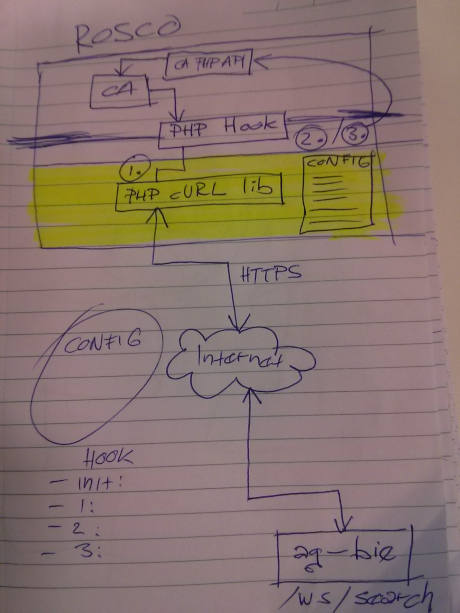 ROSCO
CA PHP API
CA
PHP Hook
2. / 3.
1.
CONFIG
PHP cURL lib
HTTPS
CONFIG
Internet
HOOK
- init:
- 1:
- 2:
- 3:
ag-bie
/ws/search